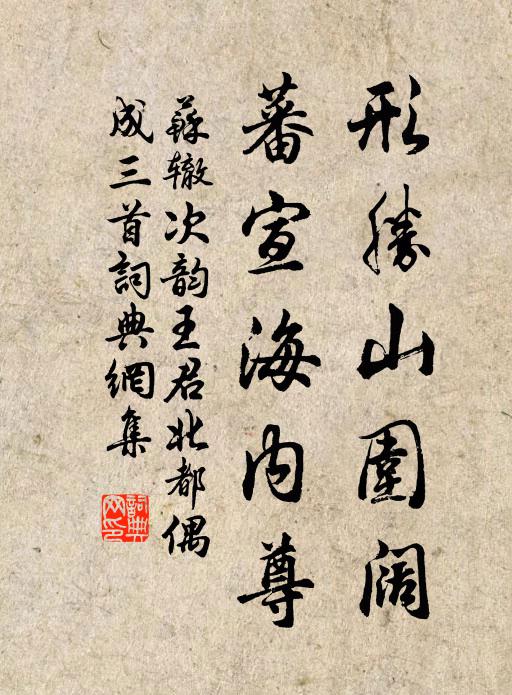 形勝山圍阔
蕃宣海内尊
蘇辙次韵王君北都偶
成三首詞典網集
詞典網印